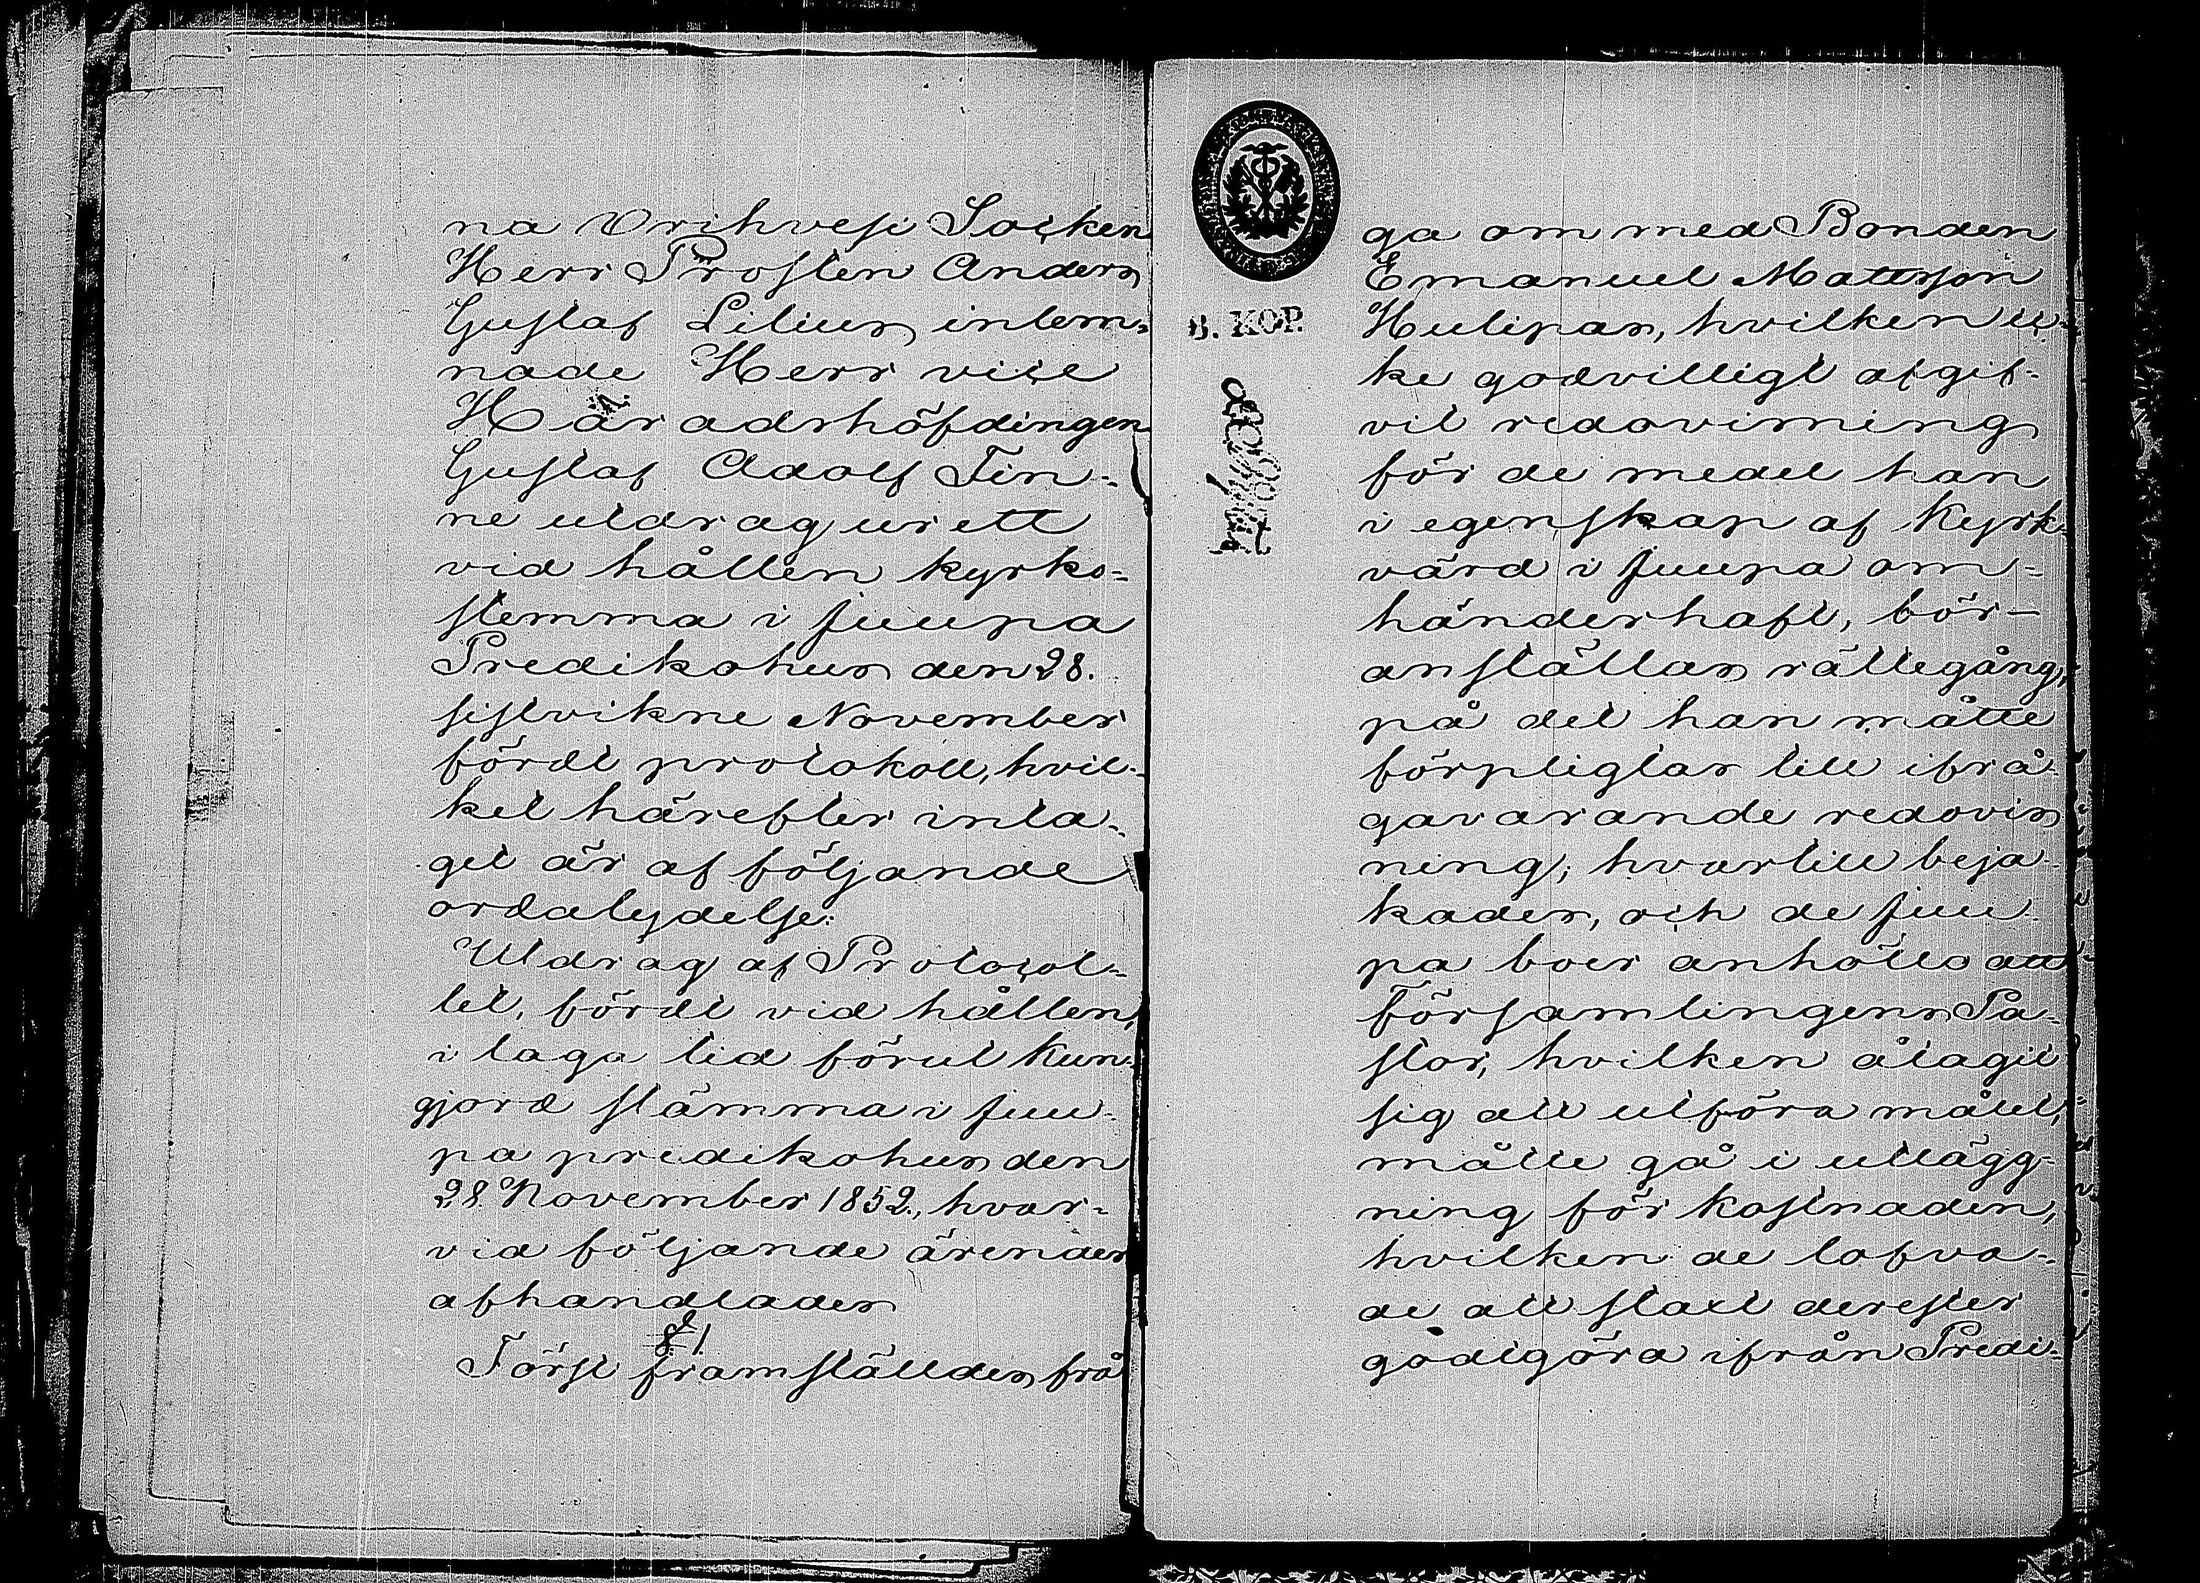 na Orihvesi Socken
Herr Prosten Anders
Gustaf Lilius inlem-
nade Herr vice
Häradshöfdingen
Gustaf Adolf Fin-
ne utdrag ur ett
vid hållen kyrko-
stemma i Juupa
Predikohus den 28.
sistvikne November
fördt protokoll, hvil-
ket härefter inta-
get är af följande
ordalydelse:
Utdrag af Protocol-
let, fördt vid hållen,
i laga tid förut kun-
gjord stämma i Juu-
pa predikohus den
28. November 1852., hvar-
vid följande ärender
afhandlades
§ 1
Först framställdes frå
B. KOP.
ga om med Bonden
Emanuel Mattsson
Hulipas, hvilken ic-
ke godvilligt afgif-
vit redovisning
för de medel han
i egenskap af Kyrk-
värd i Juupa om-
händerhaft, bör
anställas rättegång,
på det han måtte
förpligtas till ifrå-
gavarande redovis
ning; hvartill beja-
kades, och de Juu-
pa boer anhöllo att
Församlingens Pa-
stor, hvilken åtagit
sig att utföra målet,
måtte gå i utlägg-
ning för kostnaden,
hvilken de lofva-
de att straxt derefter
godtgöra ifrån Predi-